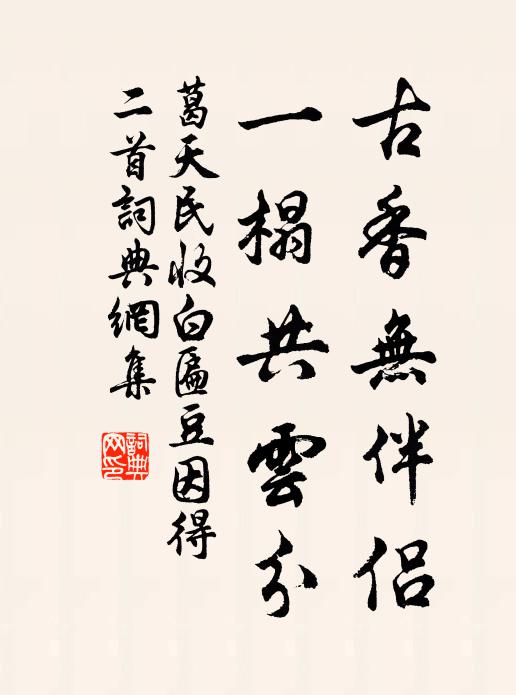 古香無伴侣
一榻共雲分
葛天民收白匾豆因得
二首詞典網集
詞典网印